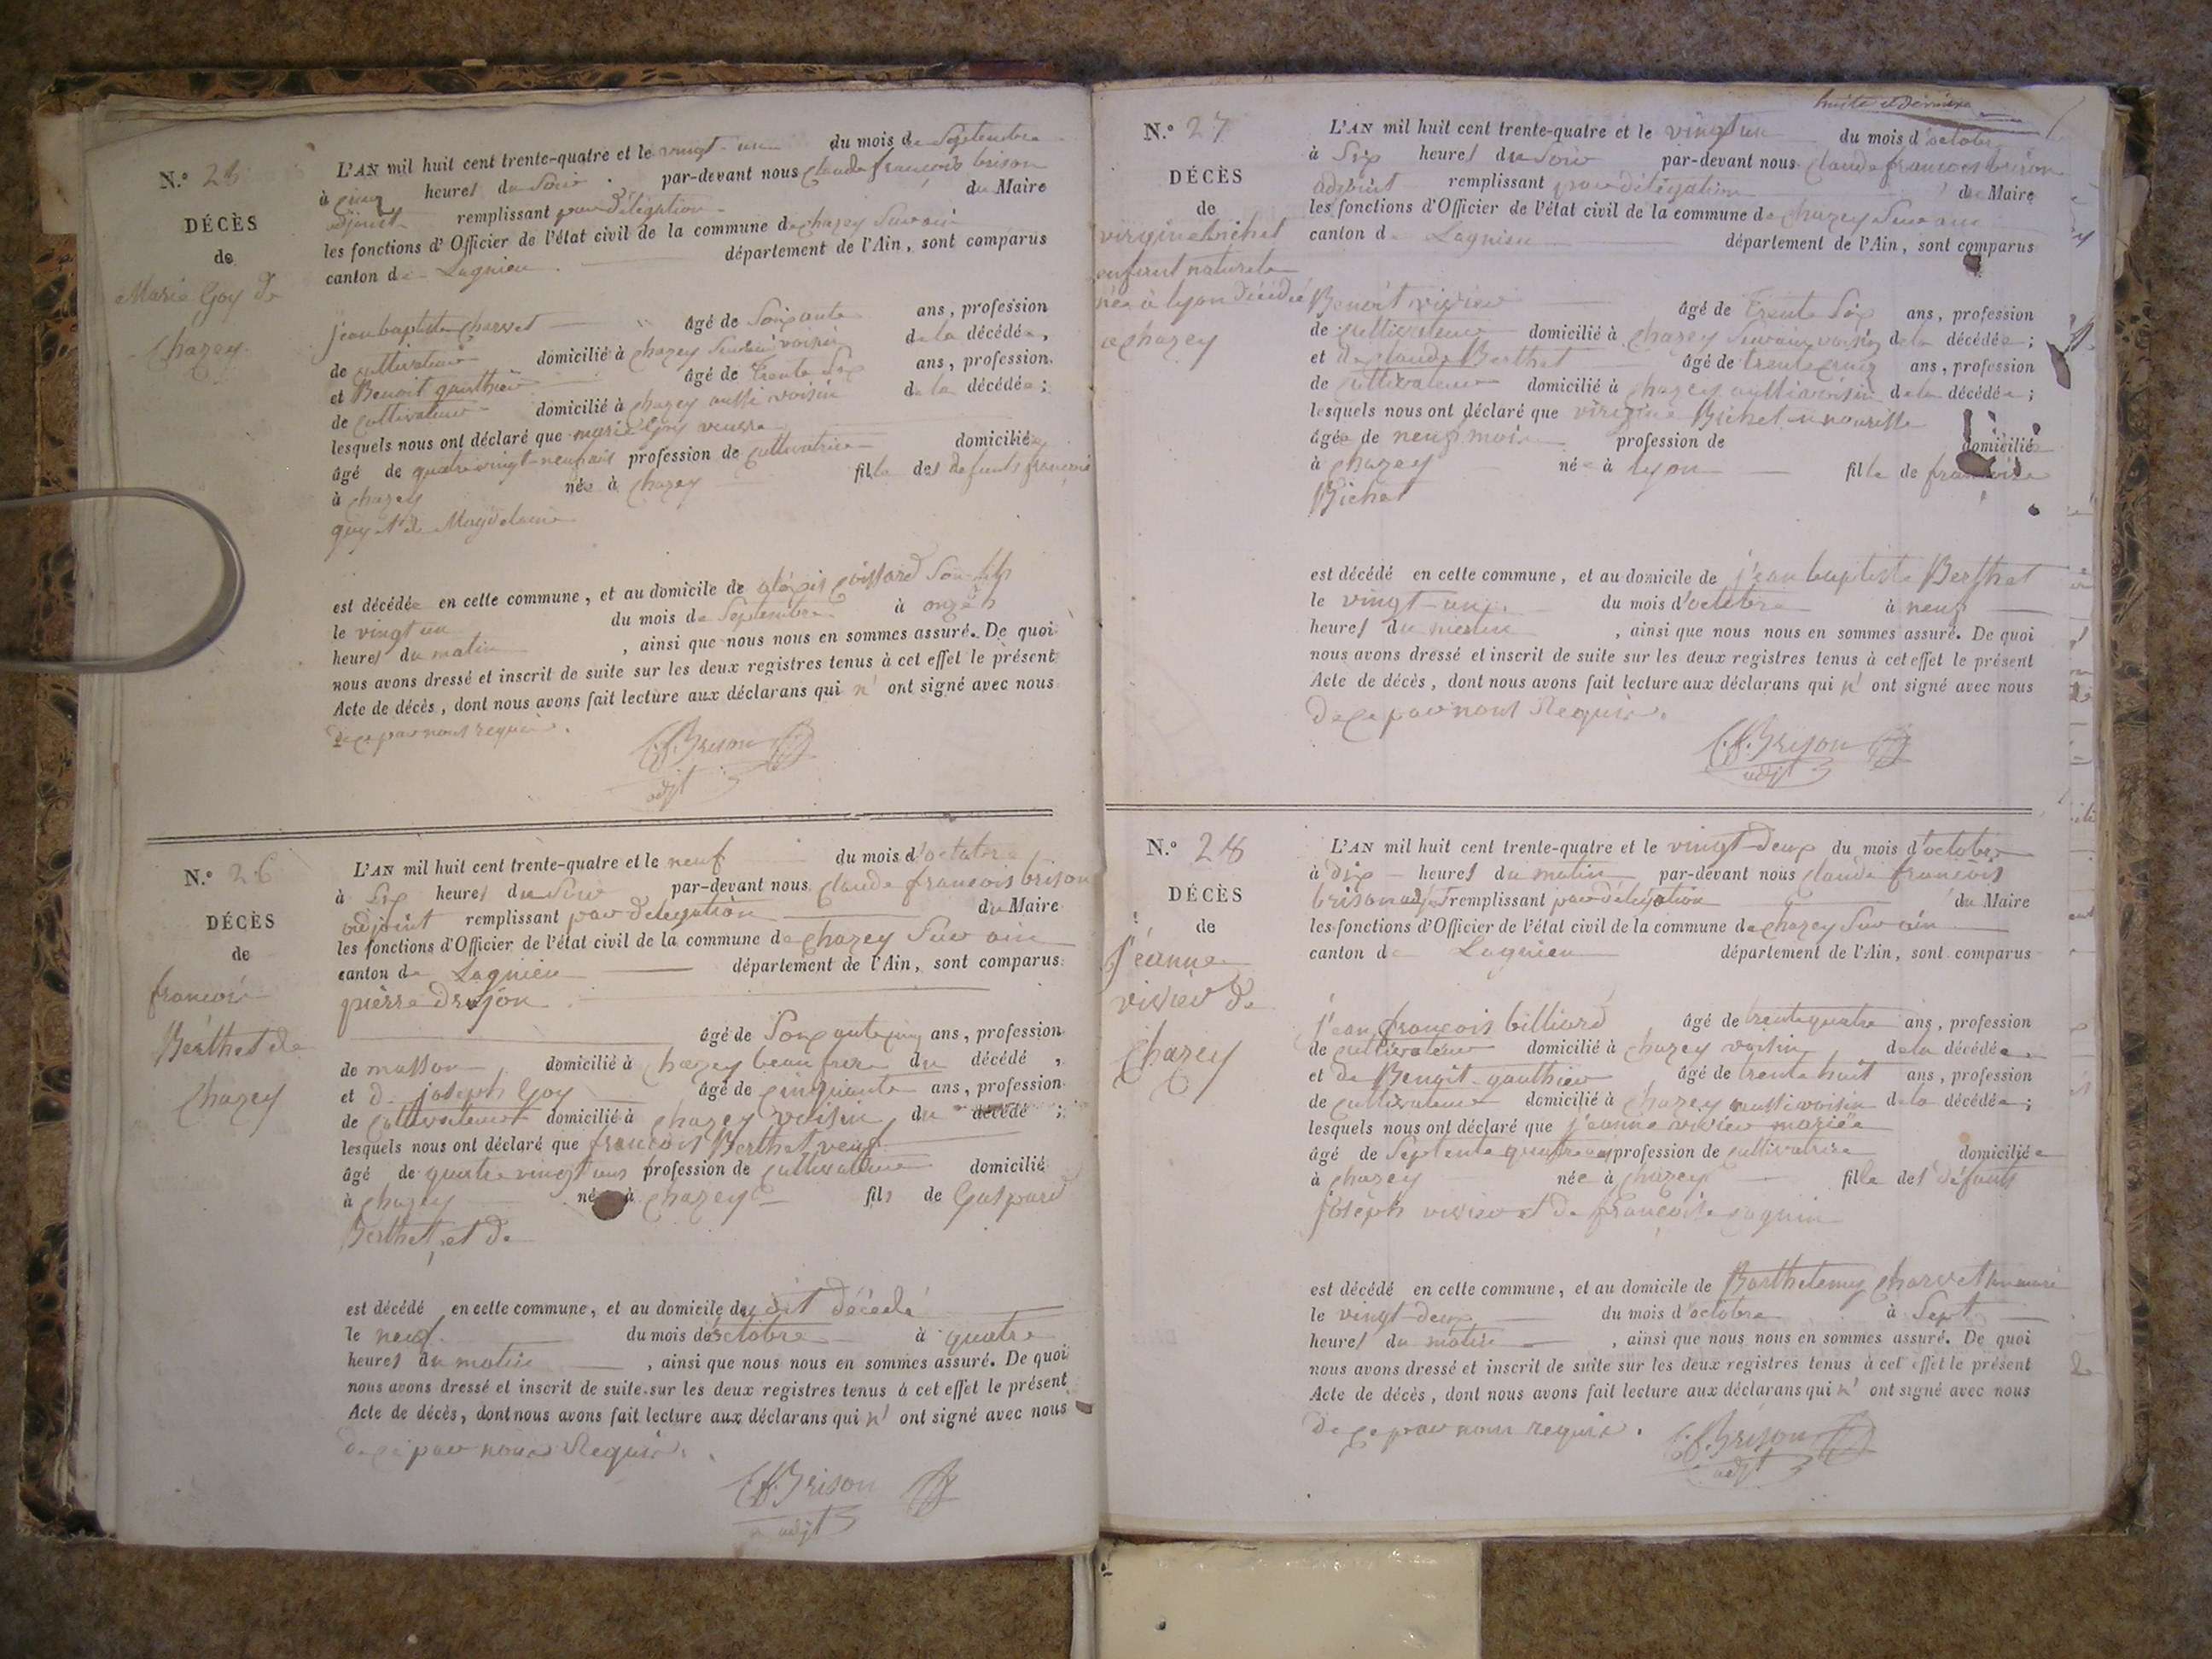 N.º 25
DÉCÈS
de
Marie Goy de
Chazey
L'AN mil huit cent trente-quatre et le vingt-un du mois de Septembre
à cinq heures du Soir par-devant nous Claude françois brison
adjoint remplissant par délégation du Maire
les fonctions d'Officier de l'état civil de la commune de chazey Sur ain
canton de Lagnieu département de l'Ain, sont comparus
jean baptiste Charvet âgé de Soixante ans, profession
de cultivateur domicilié à chazey Sur ain voisin de la décédée,
et Benoit gauthier âgé de trente Six ans, profession
de cultivateur domicilié à chazey aussi voisin de la décédée;
lesquels nous ont déclaré que marie Goy veuve
âgé de quatre vingt-neuf ans profession de cultivatrice domiciliée
à chazey née à chazey fille des defunts françois
goy et de Magdelaine
est décédée en cette commune, et au domicile de Son fils
le vingt un du mois de Septembre à onze h
heures du matin, ainsi que nous nous en sommes assuré. De quoi
nous avons dressé et inscrit de suite sur les deux registres tenus à cet effet le présent
Acte de décès, dont nous avons fait lecture aux déclarans qui n' ont signé avec nous
de ce par nous requis.
C.f. Brison
adjt
N.º 26
DÉCÈS
de
françois
Berthet de
Chazey
L'AN mil huit cent trente-quatre et le neuf du mois d'octobre
à Six heures du Soir par-devant nous Claude françois brison
adjoint remplissant par délégation du Maire
les fonctions d'Officier de l'état civil de la commune de chazey Sur ain
canton de Lagnieu département de l'Ain, sont comparus
pierre drujon
âgé de Soixante cinq ans, profession
de masson domicilié à chazey beau frere du décédé,
et de joseph Goy âgé de cinquante ans, profession
de Cultivateur domicilié à chazey voisin du décédé;
lesquels nous ont déclaré que françois Berthet veuf
âgé de quatre vingt ans profession de cultivateur domicilié
à chazey né à chazey fils de Gaspard
Berthet et de
est décédé en cette commune, et au domicile du dit décédé
le neuf du mois d'octobre à quatre
heures du matin, ainsi que nous nous en sommes assuré. De quoi
nous avons dressé et inscrit de suite sur les deux registres tenus à cet effet le présent
Acte de décès, dont nous avons fait lecture aux déclarans qui n' ont signé avec nous
de ce par nous Requis.
C.f. Brison
adjt
huite et dernière
N.º 27
DÉCÈS
de
virginie bichet
enfant naturele
née à lyon décédée
a chazey
L'AN mil huit cent trente-quatre et le vingt un du mois d'octobre
à Six heures du Soir par-devant nous Claude francois brison
adjoint remplissant par délégation du Maire
les fonctions d'Officier de l'état civil de la commune de chazey Sur ain
canton de Lagnieu département de l'Ain, sont comparus
Benoit vivier âgé de trente Six ans, profession
de cultivateur domicilié à chazey Sur ain voisin de la décédée;
et de claude Berthet âgé de trente cinq ans, profession
de Cultivateur domicilié à chazey aussi voisin de la décédée;
lesquels nous ont déclaré que virginie Bichet en nourisse
âgée de neuf mois profession de domiciliée
à chazey née à lyon fille de francoise
Bichet
est décédé en cette commune, et au domicile de jean baptiste Berthet
le vingt-un du mois d'octobre à neuf
heures du matin, ainsi que nous nous en sommes assuré. De quoi
nous avons dressé et inscrit de suite sur les deux registres tenus à cet effet le présent
Acte de décès, dont nous avons fait lecture aux déclarans qui n' ont signé avec nous
de ce par nous Requis.
C.f. Brison
adjt
N.º 28
DÉCÈS
de
jeanne
vivier de
Chazey
L'AN mil huit cent trente-quatre et le vingt-deux du mois d'octobre
à dix heures du matin par-devant nous Claude françois
brison adjt remplissant par délégation du Maire
les fonctions d'Officier de l'état civil de la commune de chazey Sur ain
canton de Lagnieu département de l'Ain, sont comparus
jean françois billiard âgé de trente quatre ans, profession
de cultivateur domicilié à chazey voisin de la décédée
et de Benoit gauthier âgé de trente huit ans, profession
de cultivateur domicilié à chazey aussi voisin de la décédée;
lesquels nous ont déclaré que jeanne vivier mariée
âgé de Septente quatre ans profession de cultivatrice domiciliée
à chazey née à chazey fille des défunts
joseph vivier et de françoise
est décédé en cette commune, et au domicile de Barthelemy Charvet son mari
le vingt-deux du mois d'octobre à Sept
heures du matin, ainsi que nous nous en sommes assuré. De quoi
nous avons dressé et inscrit de suite sur les deux registres tenus à cet effet le présent
Acte de décès, dont nous avons fait lecture aux déclarans qui n' ont signé avec nous
de ce par nous requis.
C.f. Brison
adjt